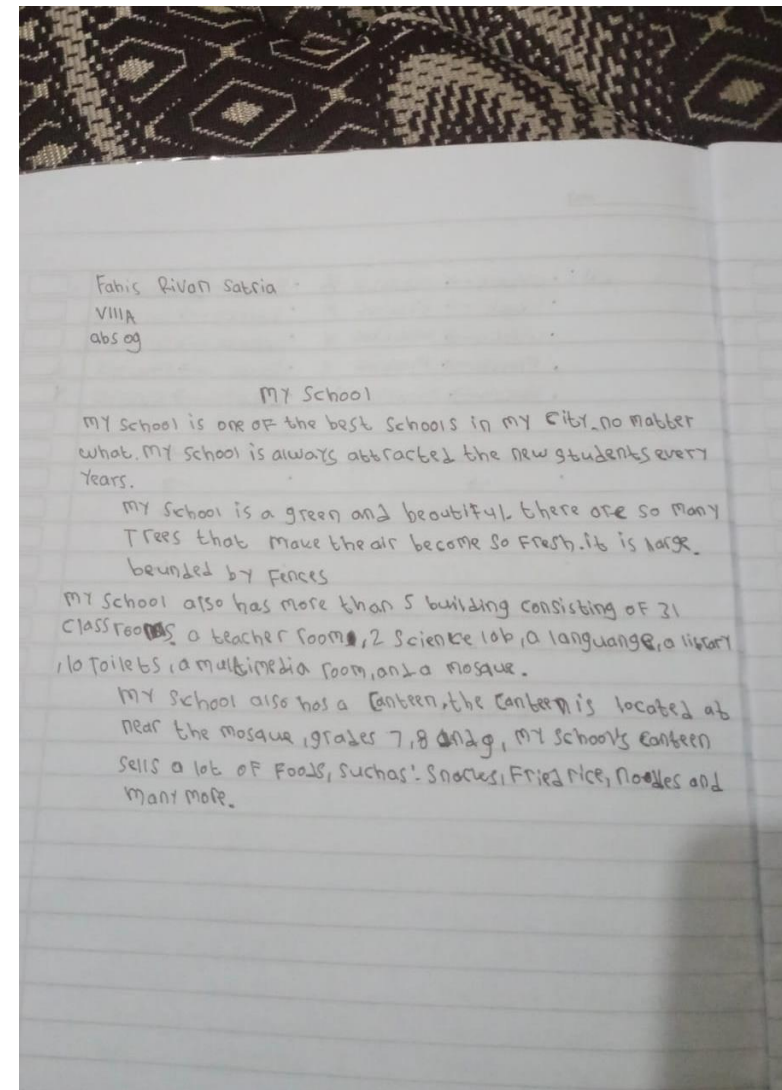 Fahis Rivan Satria
VIIIA
abs 09
My School
My School is one of the best Schools in my City. no matter
what. My School is always attracted the new students every
Years.
My School is a green and beautiful. there are so many
Trees that make the air become so Fresh. it is large.
beunded by Fences
My School also has more than 5 building consisting of 31
Classrooms, a teacher room, 2 Science lab, a languange, a library
, 10 Toilets, a multimedia room, and a mosque.
My School also has a Canteen, the Canteen is located at
near the mosque, grades 7, 8 and 9, My School's Canteen
Sells a lot of Foods, Suchas: Snacks, Fried rice, noodles and
many more.